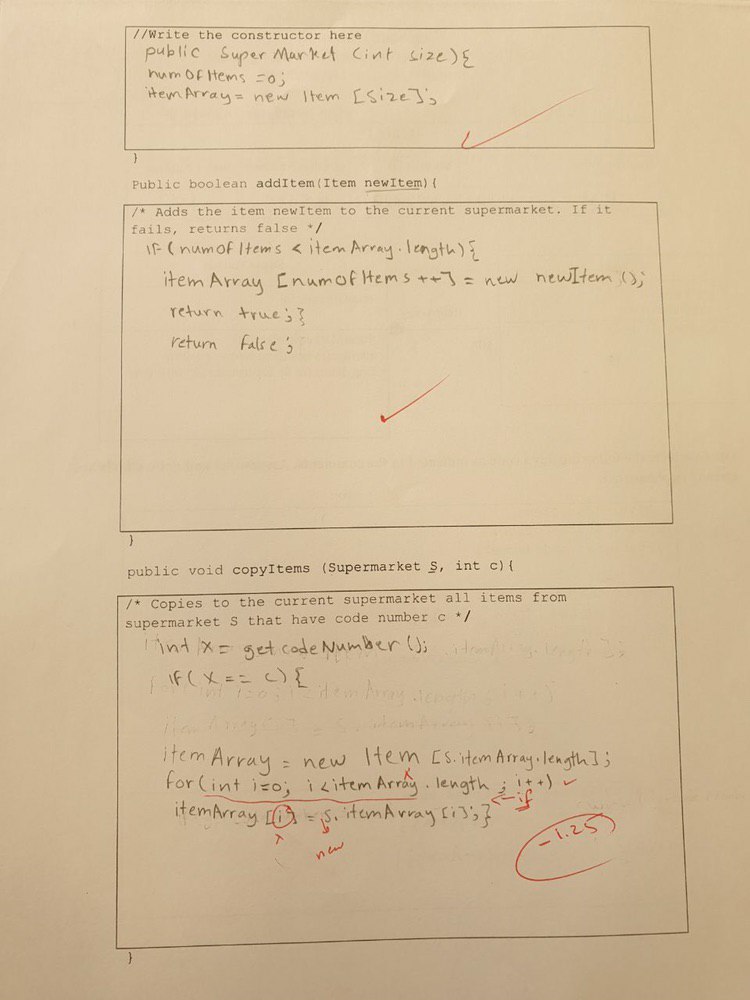 //Write the constructor here
public SuperMarket (int size){
numOfItems =0;
itemArray= new Item [size];
}
Public boolean addItem(Item newItem){
/* Adds the item newItem to the current supermarket. If it
fails, returns false */
if(numofItems < itemArray.length){
itemArray [numofItems ++] = new newItem ();
return true;}
return false;
}
public void copyItems (Supermarket S, int c){
/* Copies to the current supermarket all items from
supermarket S that have code number c */
int x= getcodeNumber ();
if(x== c){
itemArray = new Item [s.itemArray.length];
for(int i=0; i<itemArray.length; i++)
x
← if
itemArray [i] = s.itemArray[i];}
x
new
-1.25
}